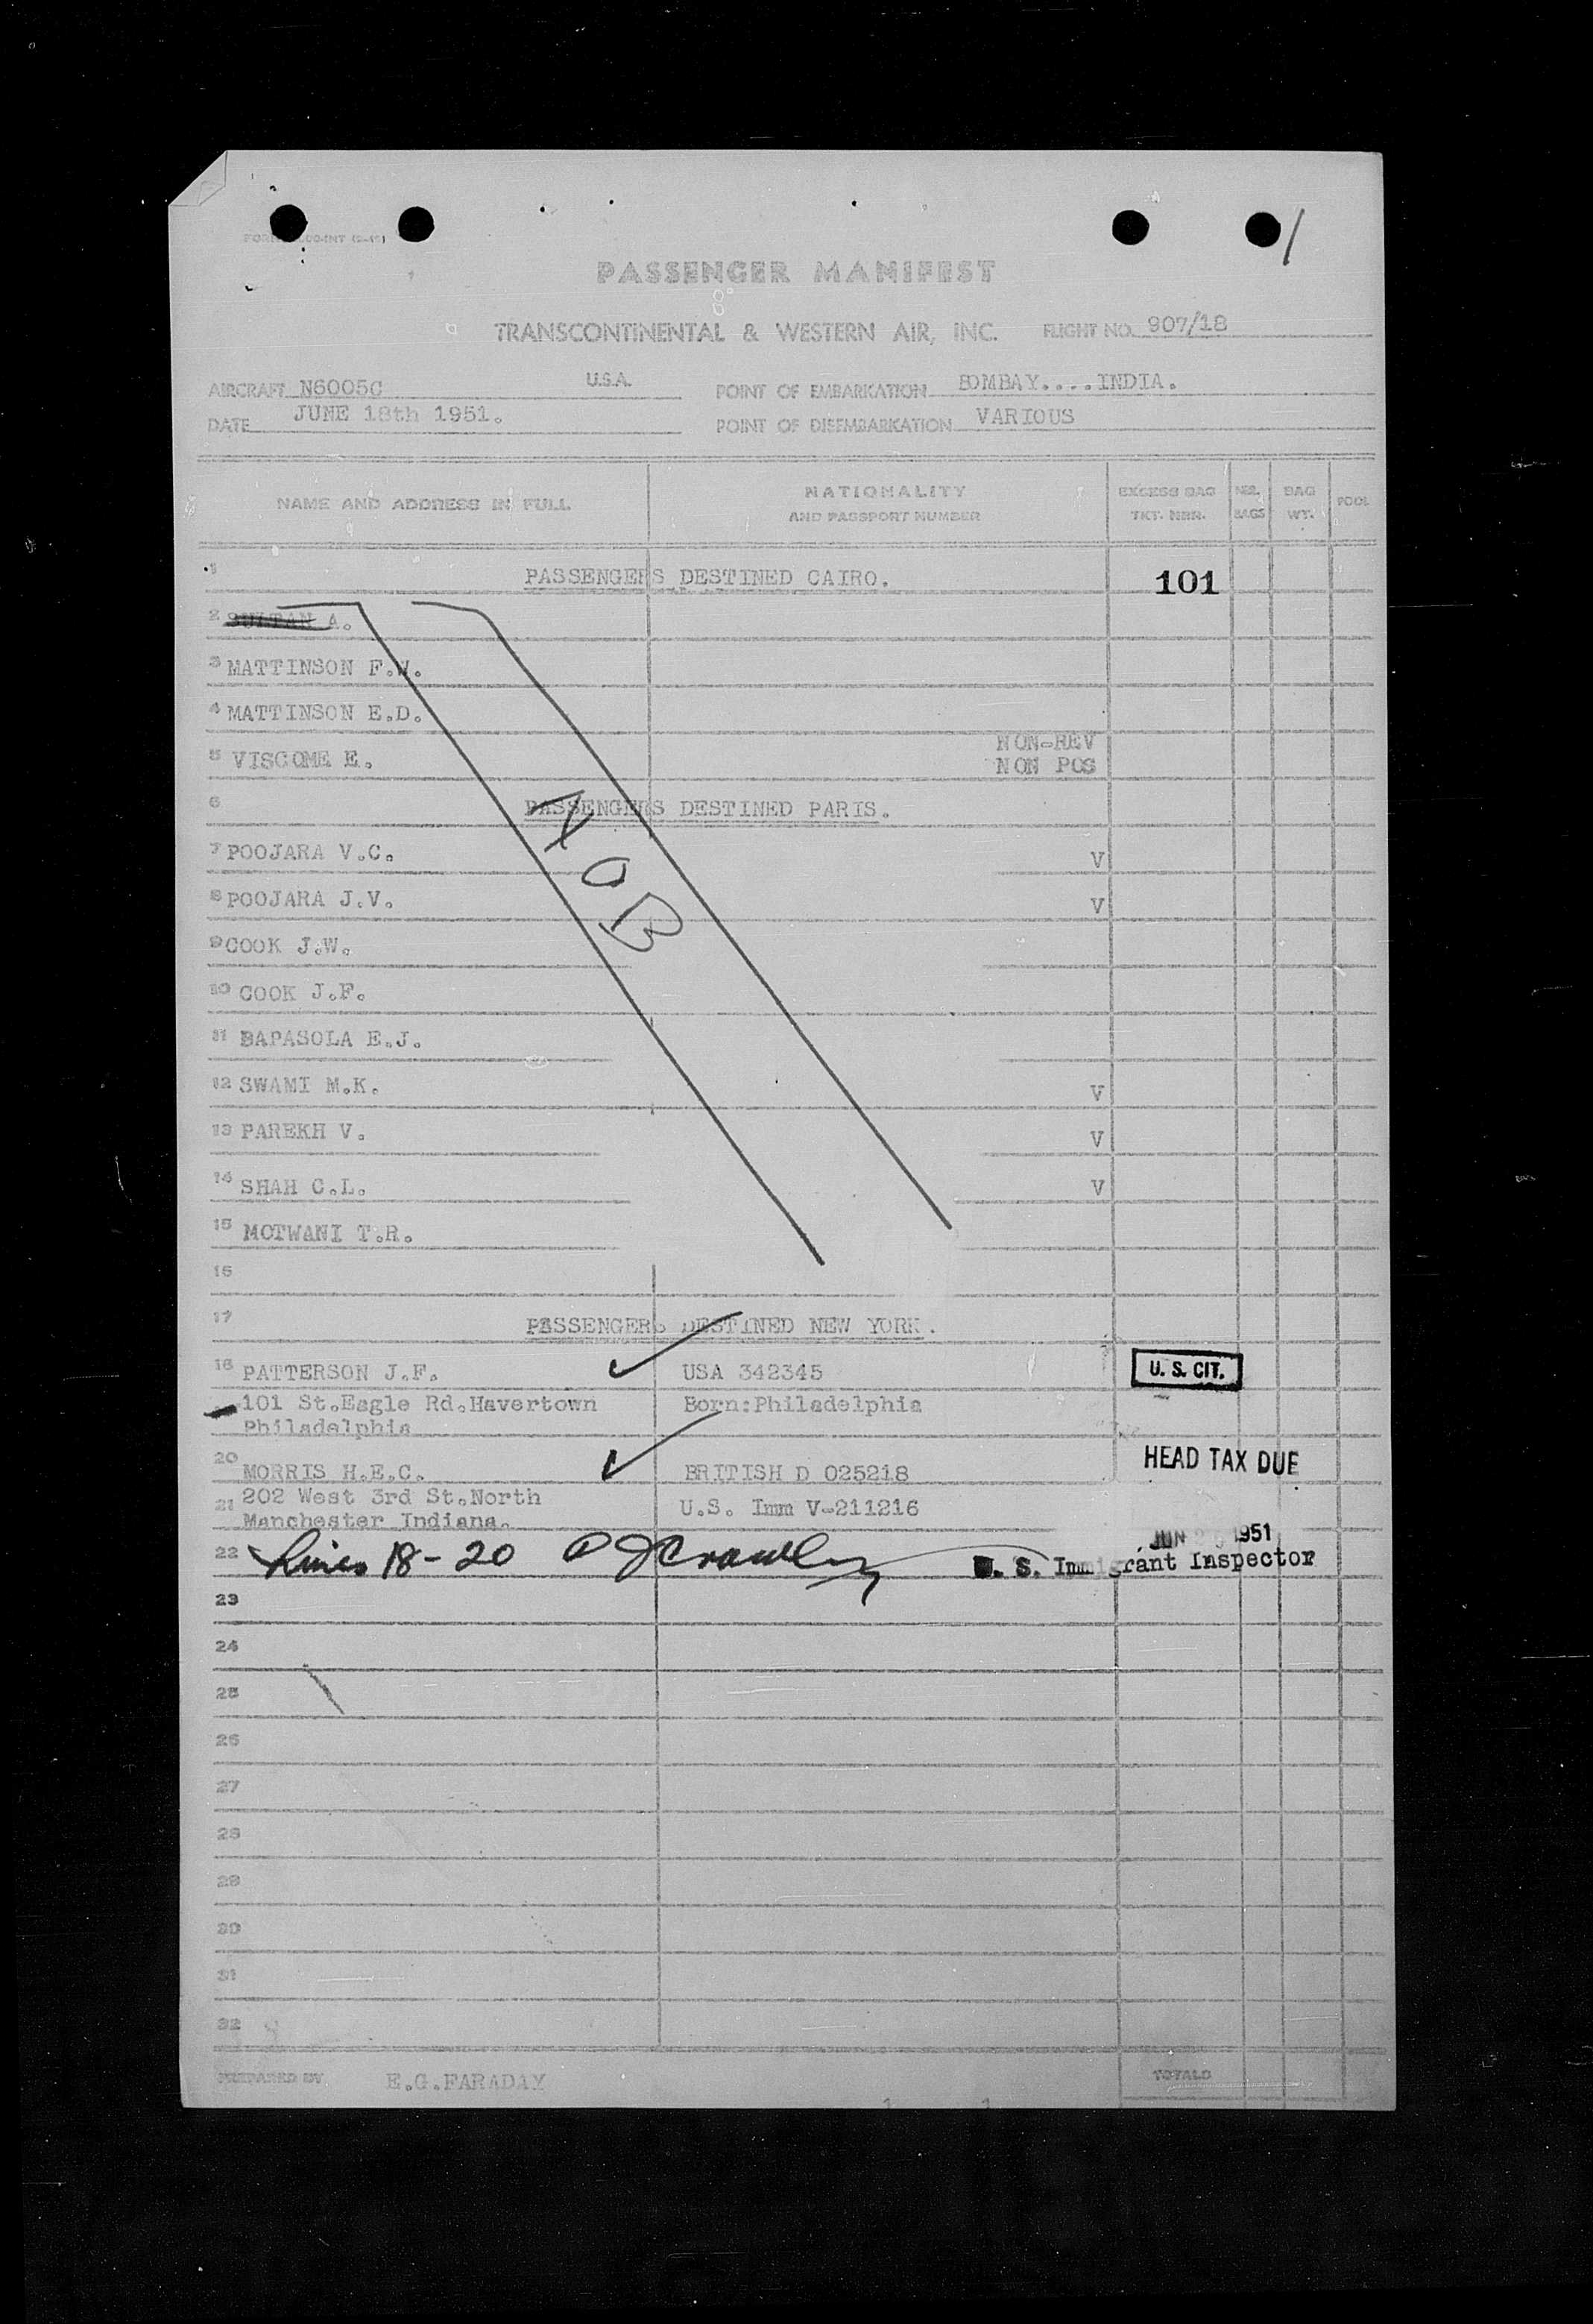 PASSENGER MANIFEST
TRANSCONTINENTAL & WESTERN AIR, INC. FLIGHT NO. 907/18
AIRCRAFT N6005C U.S.A. POINT OF EMBARKATION BOMBAY....INDIA.
DATE JUNE 18th 1951. POINT OF DISEMBARKATION VARIOUS
NAME AND ADDRESS IN FULL NATIONALITY AND PASSPORT NUMBER EXCESS BAG TKT. NBR. NBR. BAGS BAG WT. POOL
1 PASSENGERS DESTINED CAIRO. 101
2 SULTAN A.
3 MATTINSON F.W.
4 MATTINSON E.D.
5 VISCOME E. NON-REV NON POS
6 PASSENGERS DESTINED PARIS.
7 POOJARA V.C. V
8 POOJARA J.V. V
9 COOK J.W.
10 COOK J.F.
11 BAPASOLA E.J.
12 SWAMI M.K. V
13 PAREKH V. V
14 SHAH C.L. V
15 MOTWANI T.R.
16
17 PASSENGERS DESTINED NEW YORK.
18 PATTERSON J.F. USA 342345 U. S. CIT.
101 St.Eagle Rd.Havertown Born:Philadelphia
Philadelphia
20 MORRIS H.E.C. BRITISH D 025218 HEAD TAX DUE
21 202 West 3rd St.North U.S. Imm V-211216
Manchester Indiana.
JUN 1951
22 Lines 18-20 U. S. Immigrant Inspector
23
24
25
26
27
28
29
30
31
32
PREPARED BY E.G.FARADAY TOTALS